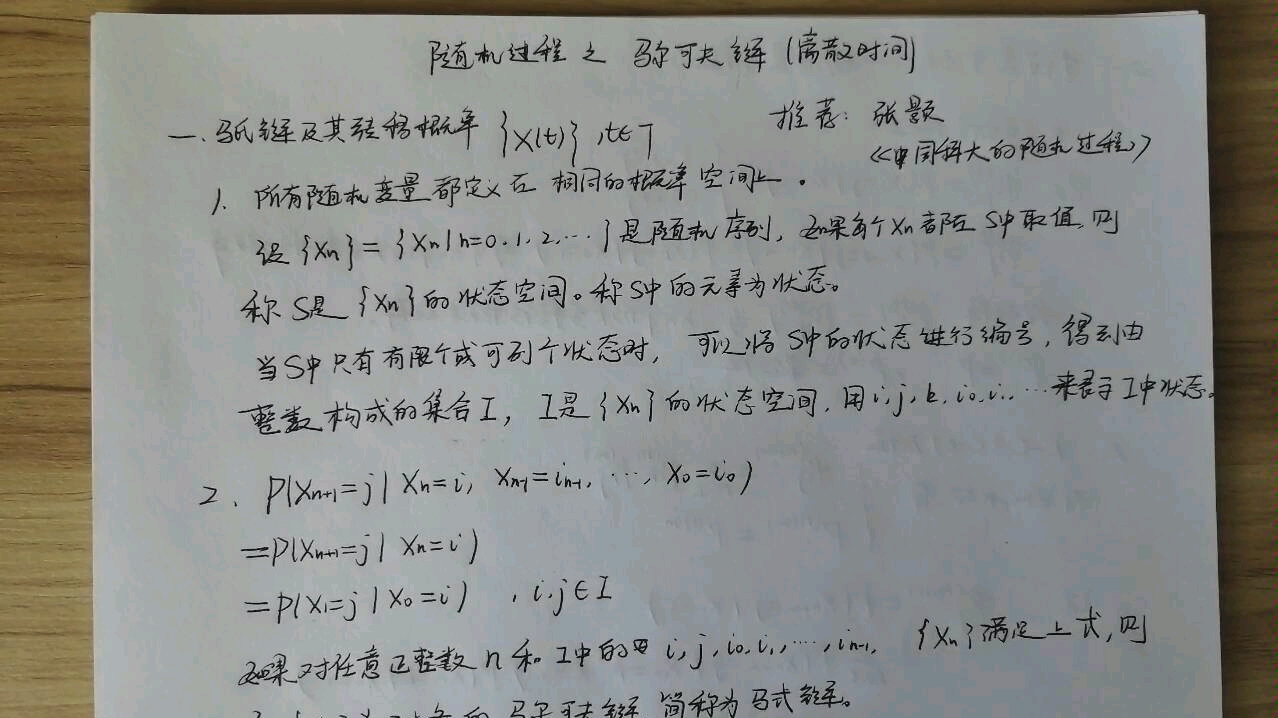 随机过程之 马尔可夫链 (离散时间)
一. 马氏链及其转移概率 {X(t)}, t∈T
推荐: 张颢
《中国科大的随机过程》
1. 所有随机变量都定义在相同的概率空间上。
设{Xn}={Xn|n=0.1.2,...}是随机序列, 如果每个Xn都在S中取值,则
称S是{Xn}的状态空间。称S中的元素为状态。
当S中只有有限个或可列个状态时, 可以将S中的状态进行编号, 得到由
整数构成的集合I, I是{Xn}的状态空间, 用i,j,k,i₀,i₁,...来表示I中状态。
2. P(Xn+1=j|Xn=i, Xn-1=in-1, ..., X₀=i₀)
=P(Xn+1=j|Xn=i)
=P(X₁=j|X₀=i) , i,j∈I
如果对任意正整数n和I中的 i,j,i₀,i₁,...,in-1, {Xn}满足上式,则
马尔可夫链 简称为马式链。